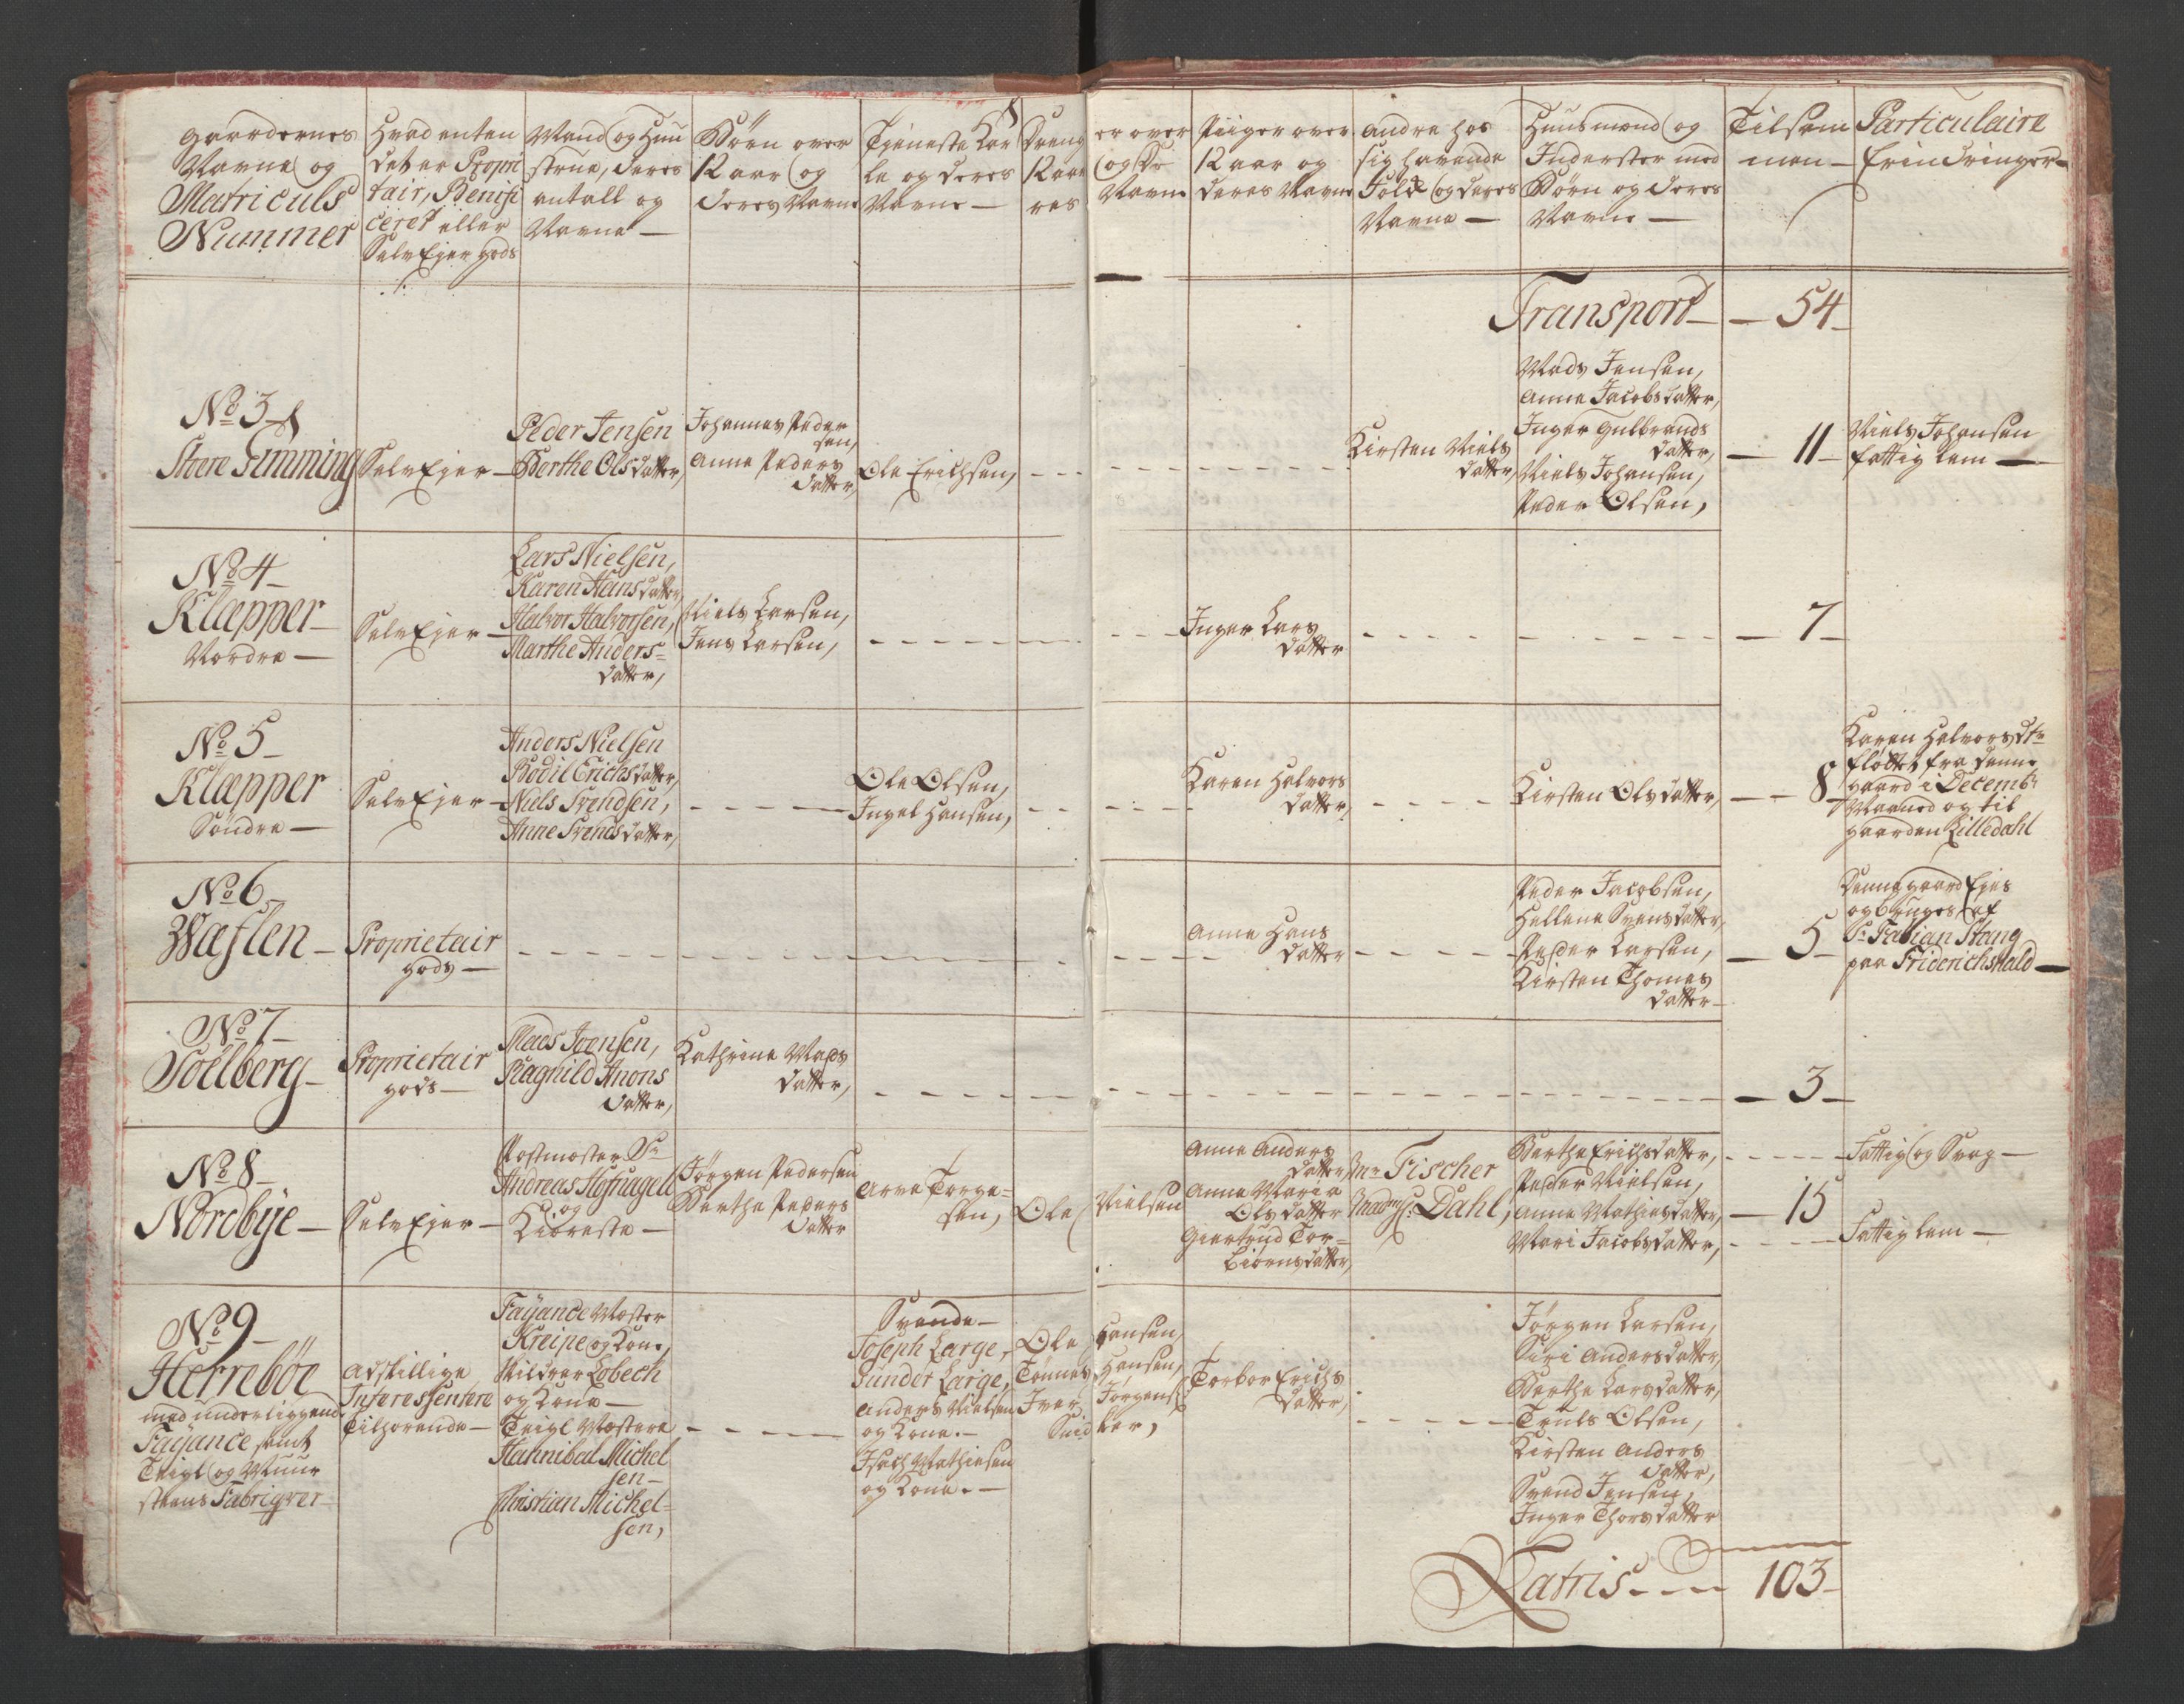 Gaardernes
Navne og
Matriculs
Nummer
Hvad enten
det er Propri
tair, Benifi
ceret eller
SelvEjer gods
Mand og Huu
strue, deres
antall og
Navne —
Børn over
12 aar og
deres Navne
Tjeneste Kar
le og deres
Navne —
Dreng
12 aar
res
er over
og De
Navne
Piiger over
12 aar og
deres Navne
Andre hos
sig havende
Folk og deres
Navne —
Huusmænd og
Inderster med
Børn og deres
Navne —
Tilsam
men —
Particulaire
Erindringer —
Transport — 54 —
No 3
Store Timming
SelvEjer —
Peder Jensen
Berthe Olsdatter,
Johannes Peder
sen,
Anne Peders
datter,
Ole Erichsen,
Kirsten Niels
datter,
Mads Jensen,
Anne Jacobsdatter,
Inger Gulbrands
datter,
Niels Johansen,
Peder Olsen,
— 11 —
Niels Johansen
fattig lem —
No 4 —
Klæpper —
Nordre —
SelvEjer —
Lars Nielsen,
Karen Hansdatter,
Halvor Halvorsen,
Marthe Anders=
datter,
Niels Larsen,
Jens Larsen,
Inger Lars
datter
— 7 —
No 5 —
Klæpper
Søndre —
SelvEjer —
Anders Nielsen
Bodil Erichsdatter,
Niels Svendsen,
Anne Svendsdatter,
Ole Olsen,
Ingel Hansen,
Karen Halvors
datter,
Kirsten Olsdatter,
— 8 —
Karen Halvorsdtr
fløttet fra denne
gaard i Decembr
Maaned og til
gaarden Lilledahl
No 6
Wæflen —
Proprietair
gods —
Anne Hans
datter
Peder Jacobsen,
Hellene Svensdatter,
Peder Larsen,
Kirsten Thomes
datter —
— 5 —
Denne gaard Ejes
og bruges af
Sr Fabian Stang
paa Friderichshald —
No 7 —
Solberg —
Proprietair
gods —
Mads Joensen,
Ragnild Anons
datter,
Kathrine Mads
datter,
— 3 —
No 8 —
Nordbÿe —
SelvEjer —
Postmester Sr
Andreas Hofnagell
og
Kiæreste —
Jørgen Pedersen
Berthe Peders
datter
Arve Torge=
sen,
Ole Nielsen
Anne Anders
datter,
Anne Maria
Olsdatter
Giertrud Tor=
biørnsdatter,
Mr Fischer
Madme Dahl,
Berthe Erichsdatter,
Peder Nielsen,
Anne Mathiesdatter,
Mari Jacobsdatter,
— 15
Fattig og Svag —
Fattig lem —
No 9 —
Herrebøe
med underliggende
Faÿance samt
Teigl og Muur
steens Fabriqver —
Adskillige
Interessentere
Tilhørende —
Faÿance Mester
Kreipe og Kone,
Pildrer Lobech
og Kone —
Teigl Mestere
Hannibal Michel
sen —
Christian Michel=
sen,
Svende —
Joseph Large,
Gunder Large,
Anders Nielsen
og Kone. —
Isach Mathiesen
og Kone. —
Ole Hansen,
Tønnes Hansen,
Iver Jørgens
Torbor Erichs
datter,
Jørgen Larsen,
Siri Andersdatter,
Berthe Larsdatter,
Truls Olsen,
Kirsten Anders
datter,
Svend Jensen,
Inger Thorsdatter
Latris — — — 103 —